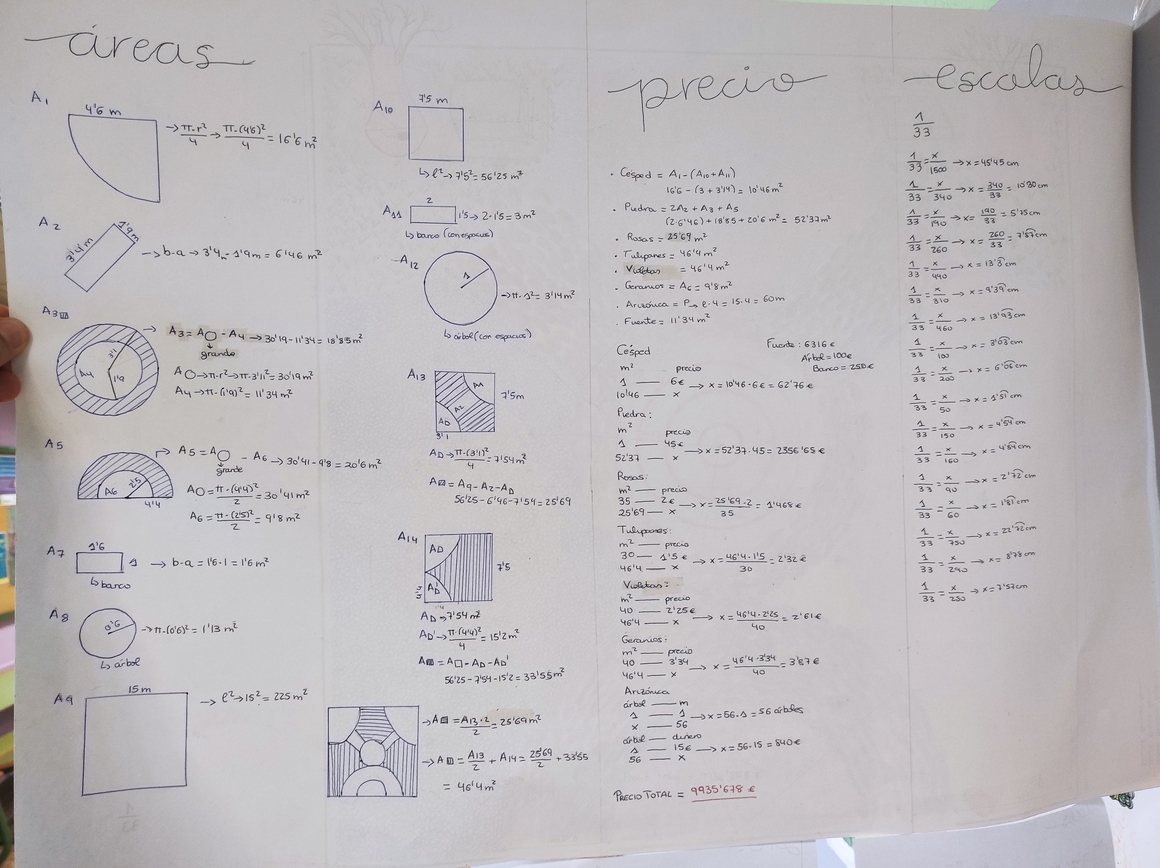 áreas
A1
4'6 m
→ π·r²/4 → π·(4'6)²/4 = 16'6 m²
A2
3'4 m
1'9 m
→ b·a → 3'4 · 1'9m = 6'46 m²
A3
A4
1'9
→ A3 = A○ - A4 → 30'19 - 11'34 = 18'85 m²
grande
A○ → π·r² → π·3'1² = 30'19 m²
A4 → π·(1'9)² = 11'34 m²
A5
A6
2'5
4'4
→ A5 = A○ - A6 → 30'41 - 9'8 = 20'6 m²
grande
A○ = π·(4'4)²/2 = 30'41 m²
A6 = π·(2'5)²/2 = 9'8 m²
A7
1'6
1
→ b·a = 1'6·1 = 1'6 m²
↳ banco
A8
0'6
→ π·(0'6)² = 1'13 m²
↳ árbol
A9
15 m
→ l² → 15² = 225 m²
A10
7'5 m
↳ l² → 7'5² = 56'25 m²
A11
2
1'5 → 2·1'5 = 3 m²
↳ banco (con espacios)
A12
1
→ π·1² = 3'14 m²
↳ árbol (con espacios)
A13
A2
AD
3'1
7'5m
AD → π·(3'1)²/4 = 7'54 m²
A▨ = A9 - A2 - AD
56'25 - 6'46 - 7'54 = 25'69
A14
AD
AD'
7'5
AD → 7'54 m²
AD' → π·(4'4)²/4 = 15'2 m²
A▥ = A□ - AD - AD'
56'25 - 7'54 - 15'2 = 33'55 m²
→ A▤ = A13·2/2 = 25'69 m²
→ A▥ = A13/2 + A14 = 25'69/2 + 33'55
= 46'4 m²
precio
· Césped = A1 - (A10 + A11)
16'6 - (3 + 3'14) = 10'46 m²
· Piedra = 2A2 + A3 + A5
(2·6'46) + 18'85 + 20'6 m² = 52'37 m²
· Rosas = 25'69 m²
· Tulipanes = 46'4 m²
· Violetas = 46'4 m²
· Geranios = A6 = 9'8 m²
· Arizónica = P → l·4 = 15·4 = 60m
· Fuente = 11'34 m²
Fuente: 6316 €
Árbol = 100€
Banco = 250€
Césped
m² precio
1 — 6€ → x = 10'46·6€ = 62'76 €
10'46 — x
Piedra:
m² precio
1 — 45€ → x = 52'37·45 = 2356'65 €
52'37 — x
Rosas:
m² — precio
35 — 2€ → x = 25'69·2/35 = 1'468 €
25'69 — x
Tulipanes:
m² — precio
30 — 1'5 € → x = 46'4·1'5/30 = 2'32 €
46'4 — x
Violetas:
m² — precio
40 — 2'25€ → x = 46'4·2'25/40 = 2'61 €
46'4 — x
Geranios:
m² — precio
40 — 3'34 → x = 46'4·3'34/40 = 3'87 €
46'4 — x
Arizónica
árbol — m
1 — 1 → x = 56·1 = 56 árboles
x — 56
árbol — dinero
1 — 15€ → x = 56·15 = 840€
56 — x
PRECIO TOTAL = 9935'678 €
escalas
1/33
1/33 = x/1500 → x = 45'45 cm
1/33 = x/340 → x = 340/33 = 10'30 cm
1/33 = x/190 → x = 190/33 = 5'75 cm
1/33 = x/260 → x = 260/33 = 7'87 cm
1/33 = x/440 → x = 13'3 cm
1/33 = x/310 → x = 9'39 cm
1/33 = x/460 → x = 13'93 cm
1/33 = x/100 → x = 3'03 cm
1/33 = x/200 → x = 6'06 cm
1/33 = x/50 → x = 1'51 cm
1/33 = x/150 → x = 4'54 cm
1/33 = x/160 → x = 4'84 cm
1/33 = x/90 → x = 2'72 cm
1/33 = x/60 → x = 1'81 cm
1/33 = x/750 → x = 22'72 cm
1/33 = x/290 → x = 8'78 cm
1/33 = x/250 → x = 7'57 cm